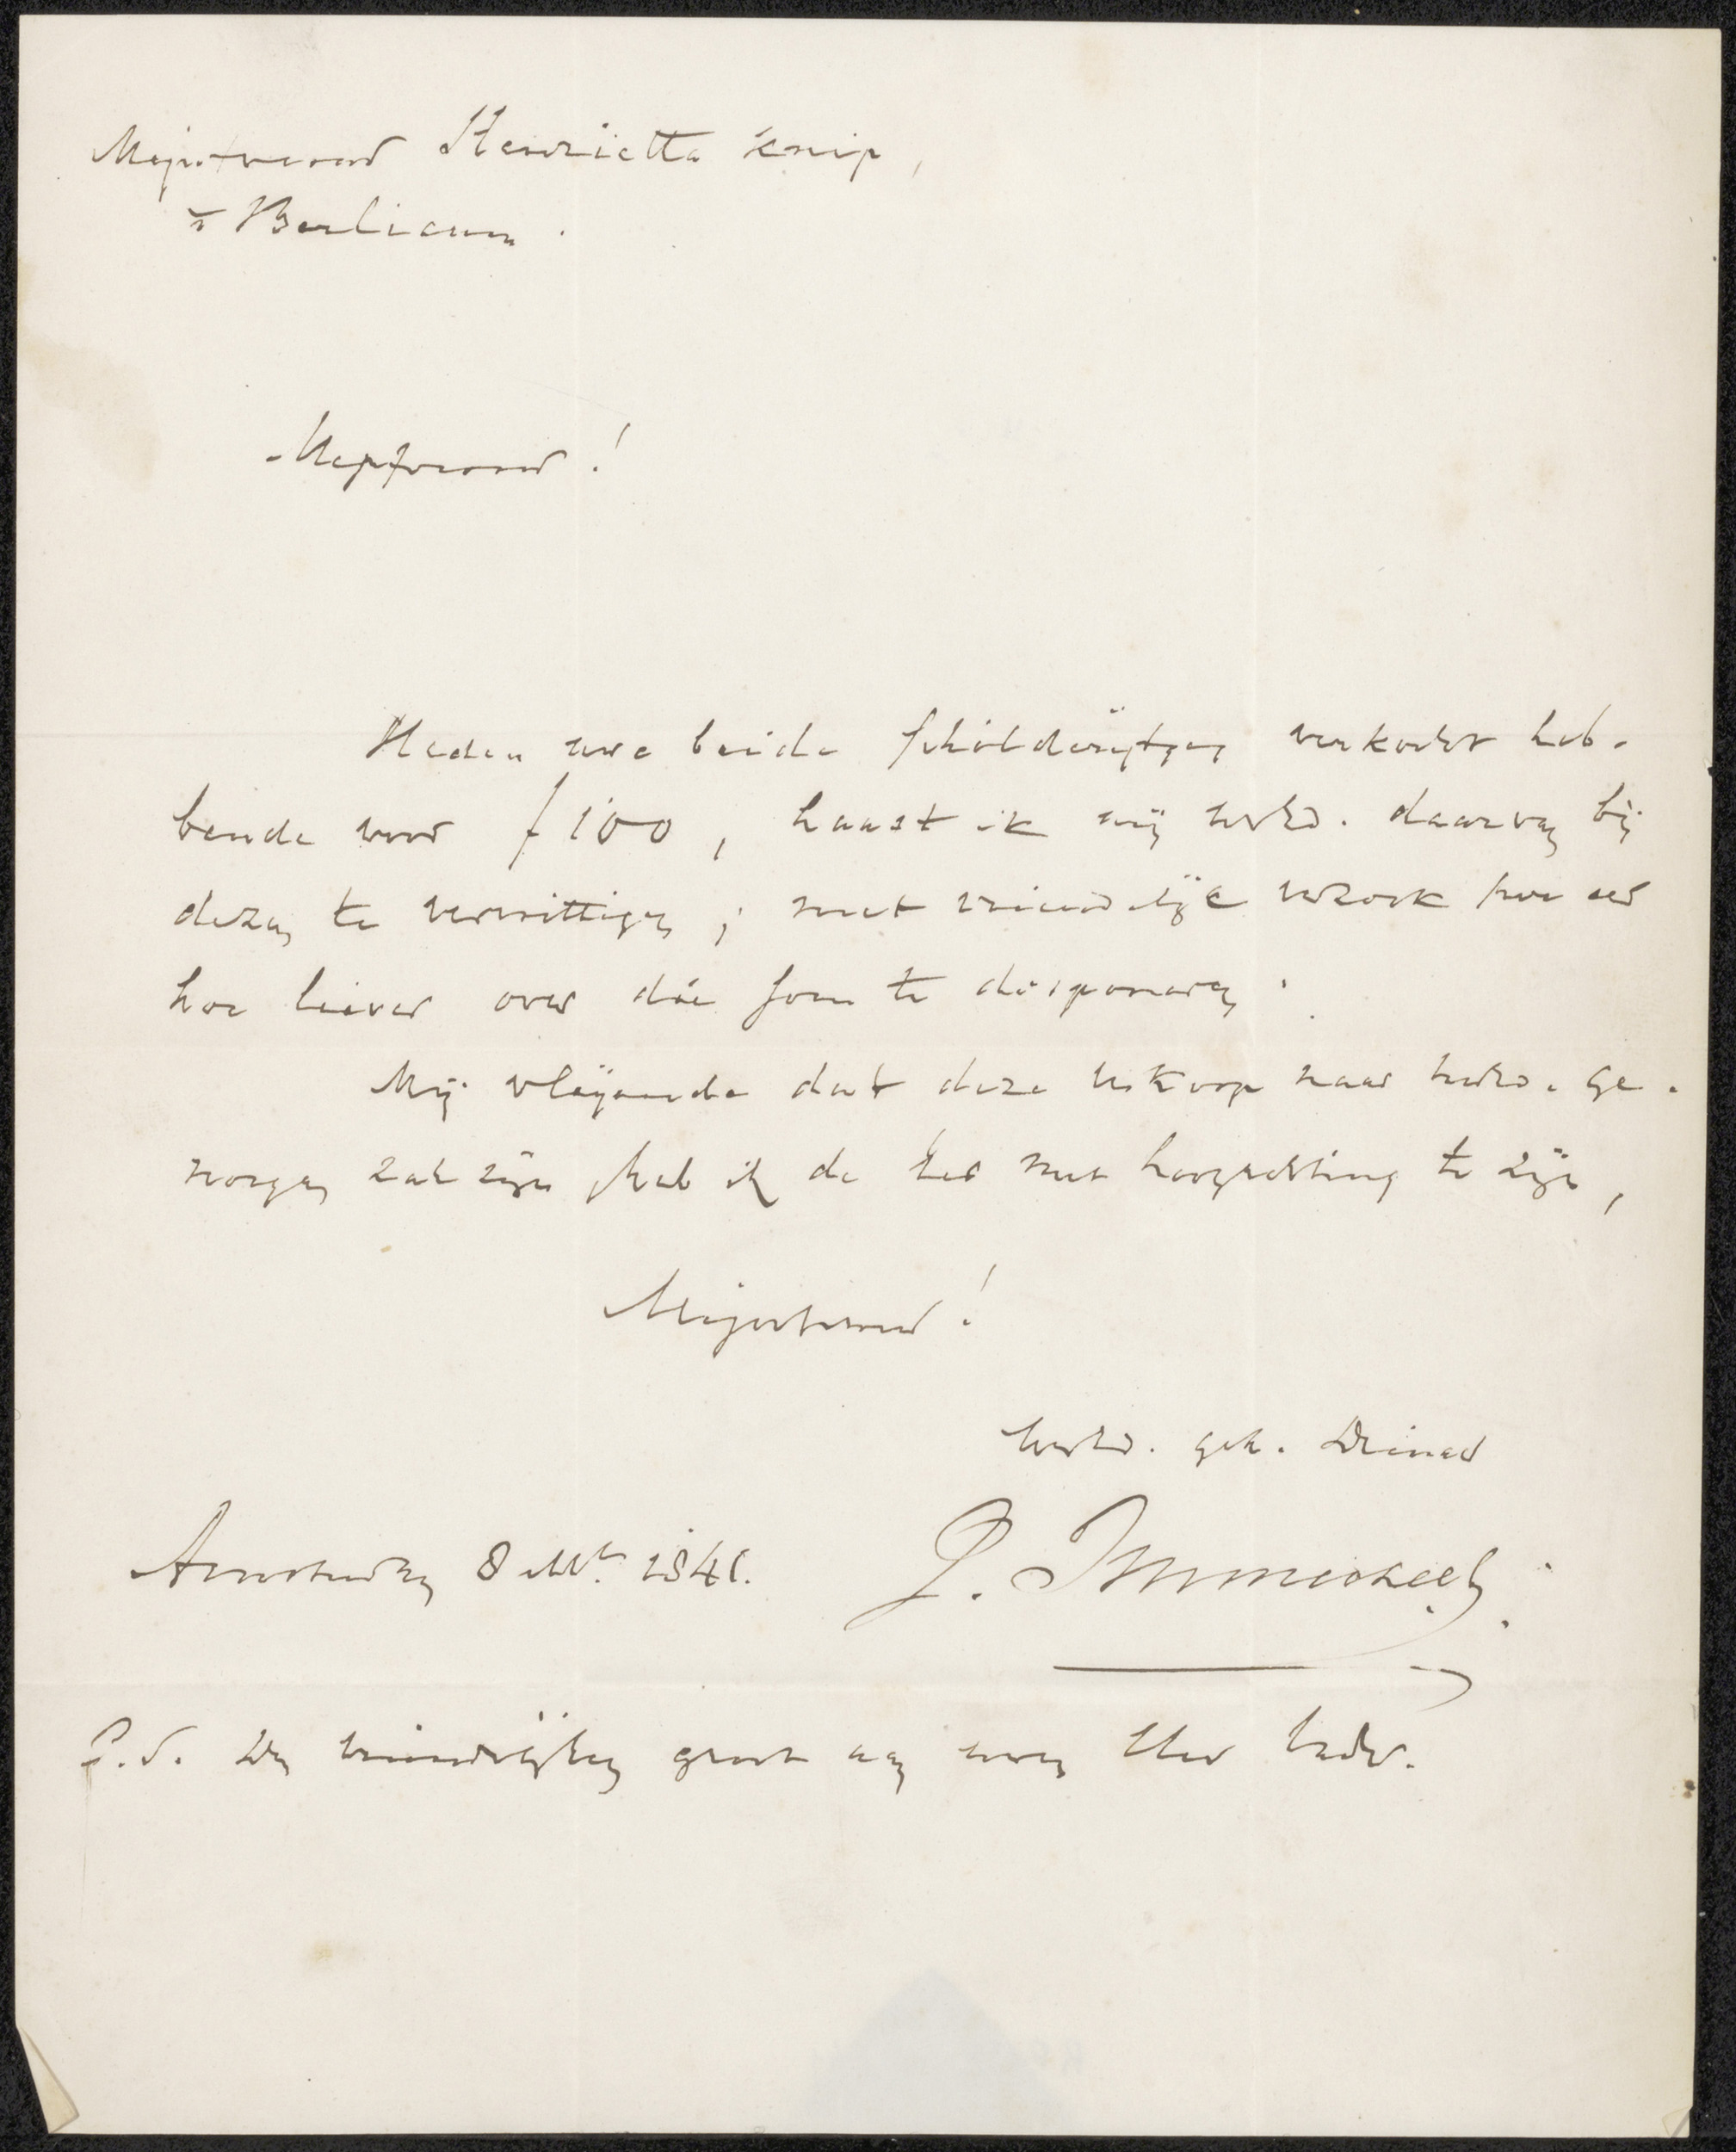 Mejufvrouw Henrietta Knip,
te Berlicum.
Mejufvrouw!
Heden uwe beide schilderijtjes verkocht heb-
bende voor ƒ 100, haast ik mij UwEd. daarvan bij
dezen te verwittigen; met vriendelijk verzoek hoe eer
hoe liever over die som te disponeren.
Mij vleijende dat deze verkoop naar UwEd. ge-
noegen zal zijn heb ik de eer met hoogachting te zijn,
Mejufvrouw!
UwEd. geh. Dienaar
Amsterdam 8 1841. J. Immerzeel
P.S. Den vriendelijken groet aan uwen Heer Vader.